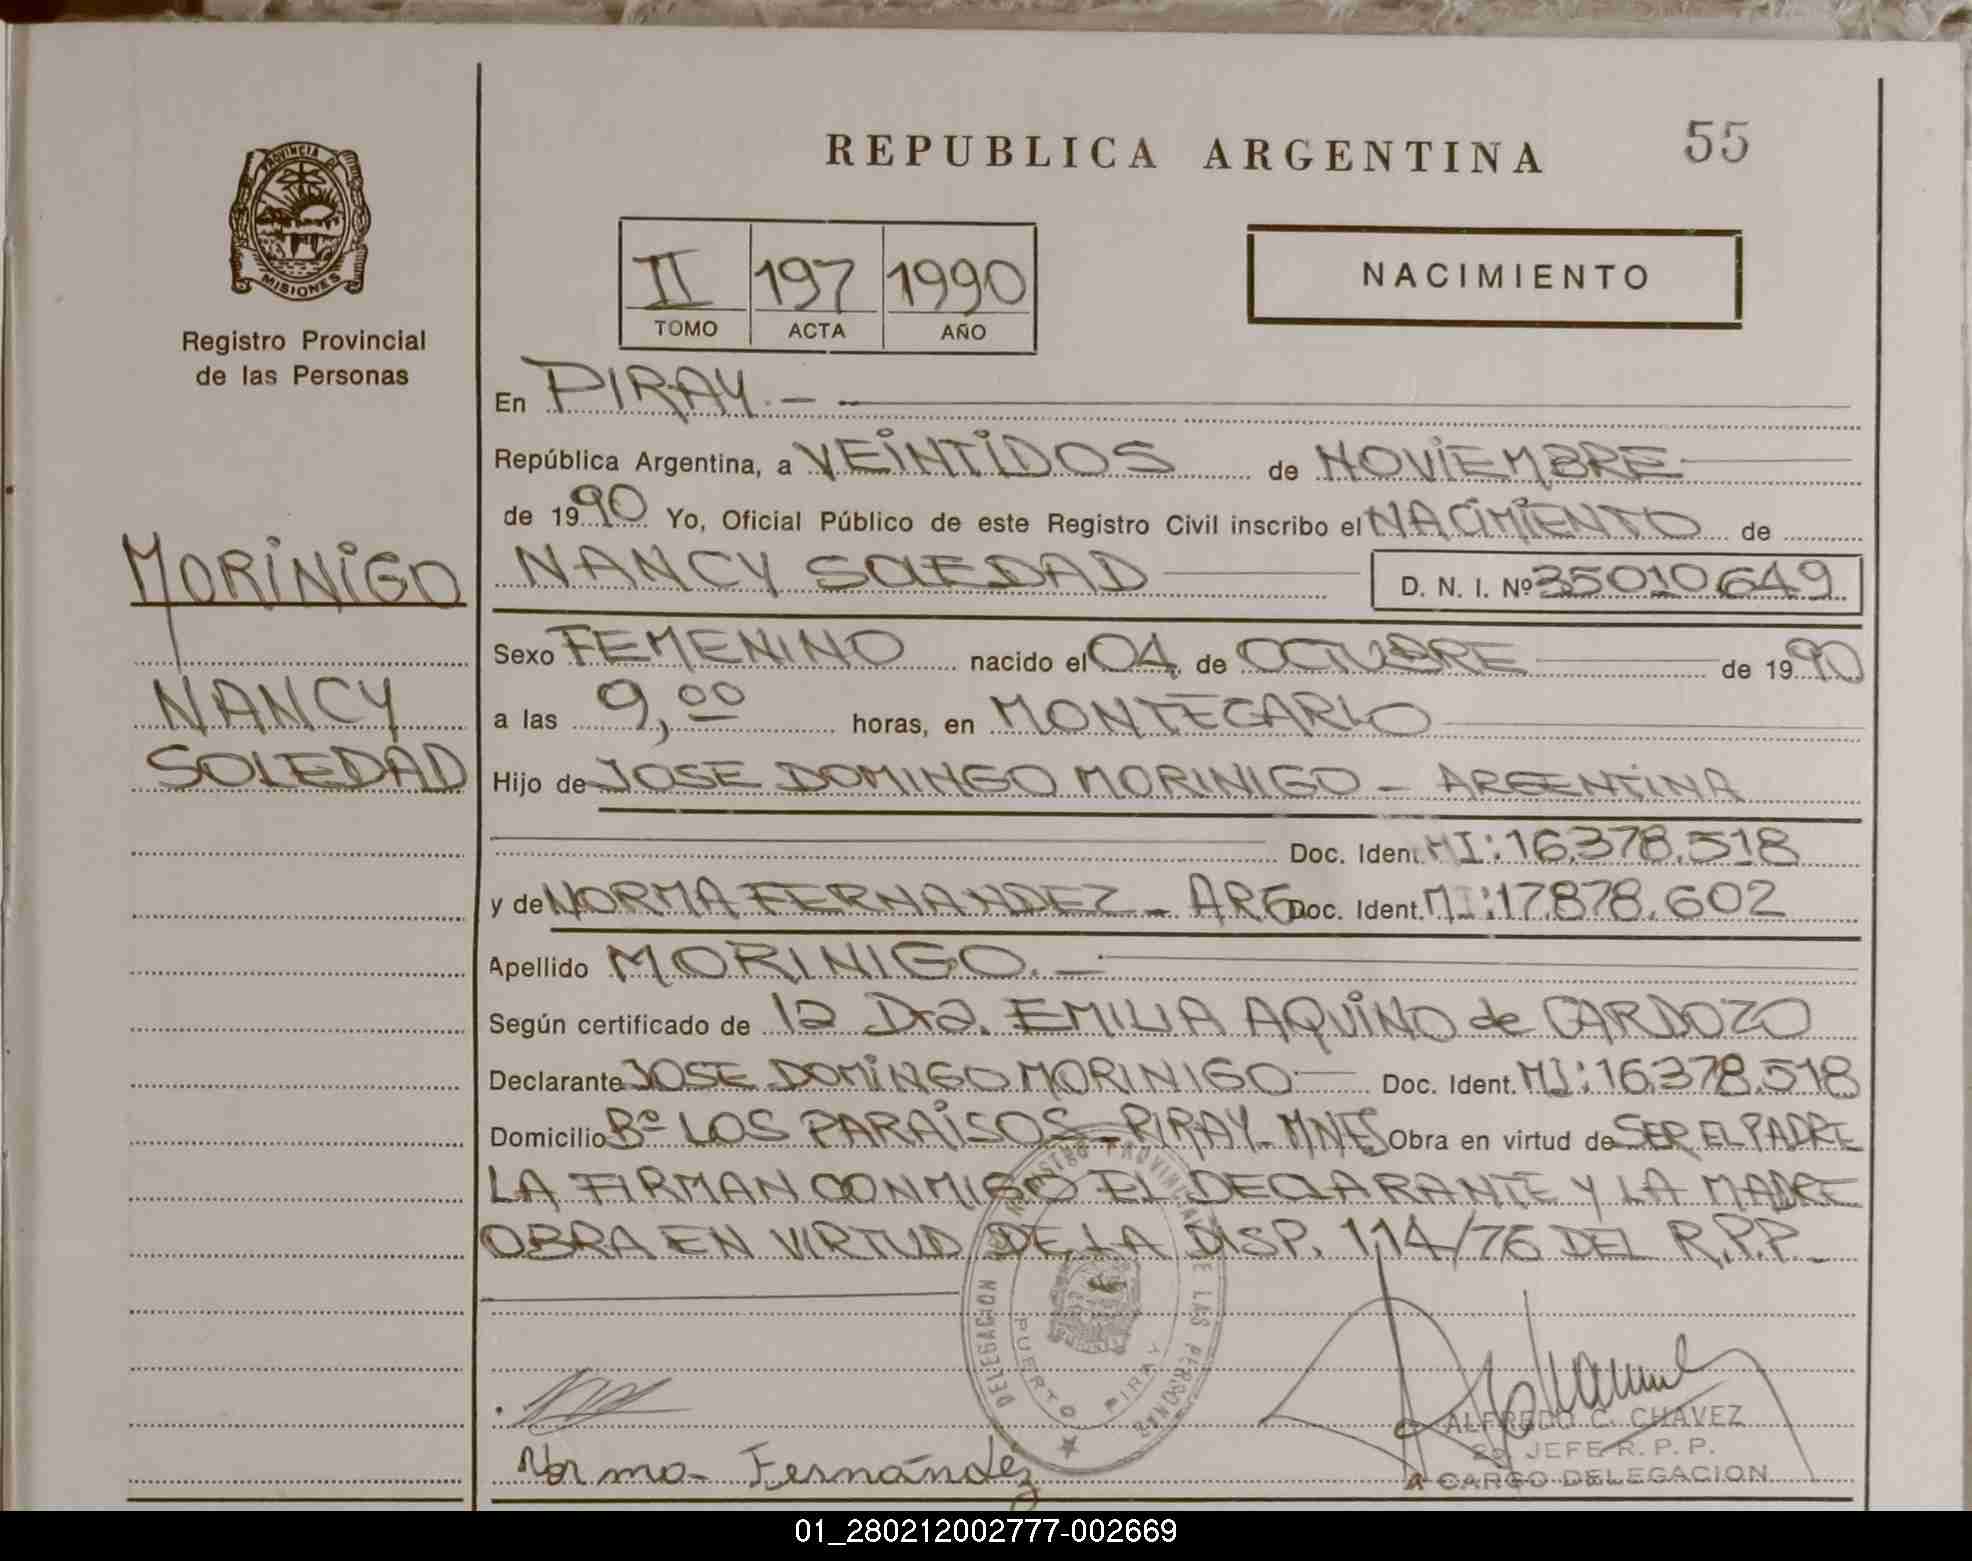 REPUBLICA ARGENTINA
55
PROVINCIA
MISIONES
Registro Provincial
de las Personas
II 197 1990
TOMO ACTA AÑO
NACIMIENTO
MORINIGO
NANCY
SOLEDAD
En PIRAY.-
República Argentina, a VEINTIDOS de NOVIEMBRE
de 1990 Yo, Oficial Público de este Registro Civil inscribo el NACIMIENTO de
NANCY SOLEDAD D. N. I. Nº 35010649
Sexo FEMENINO nacido el 04 de OCTUBRE de 1990
a las 9,00 horas, en MONTECARLO
Hijo de JOSE DOMINGO MORINIGO - ARGENTINA
Doc. Ident. MI: 16.378.518
y de NORMA FERNANDEZ - ARG Doc. Ident. MI: 17.878.602
Apellido MORINIGO.-
Según certificado de 12 Dra. EMILIA AQUINO de CARDOZO
Declarante JOSE DOMINGO MORINIGO Doc. Ident. MI: 16.378.518
Domicilio Bº LOS PARAISOS - PIRAY - MNES Obra en virtud de SER EL PADRE
LA FIRMAN CONMIGO EL DECLARANTE Y LA MADRE
OBRA EN VIRTUD DE LA DISP. 114/76 DEL R.P.P.-
DELEGACION REGISTRO PROVINCIAL DE LAS PERSONAS
PUERTO PIRAY
ALFREDO C. CHAVEZ
JEFE R. P. P.
A CARGO DELEGACION
Norma Fernández
01_280212002777-002669